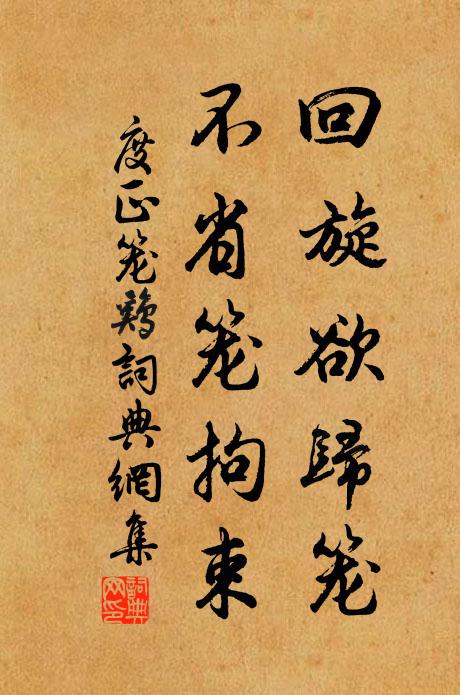 回旋欲歸笼
不省笼拘束
度正笼鷄詞典網集
詞典网印